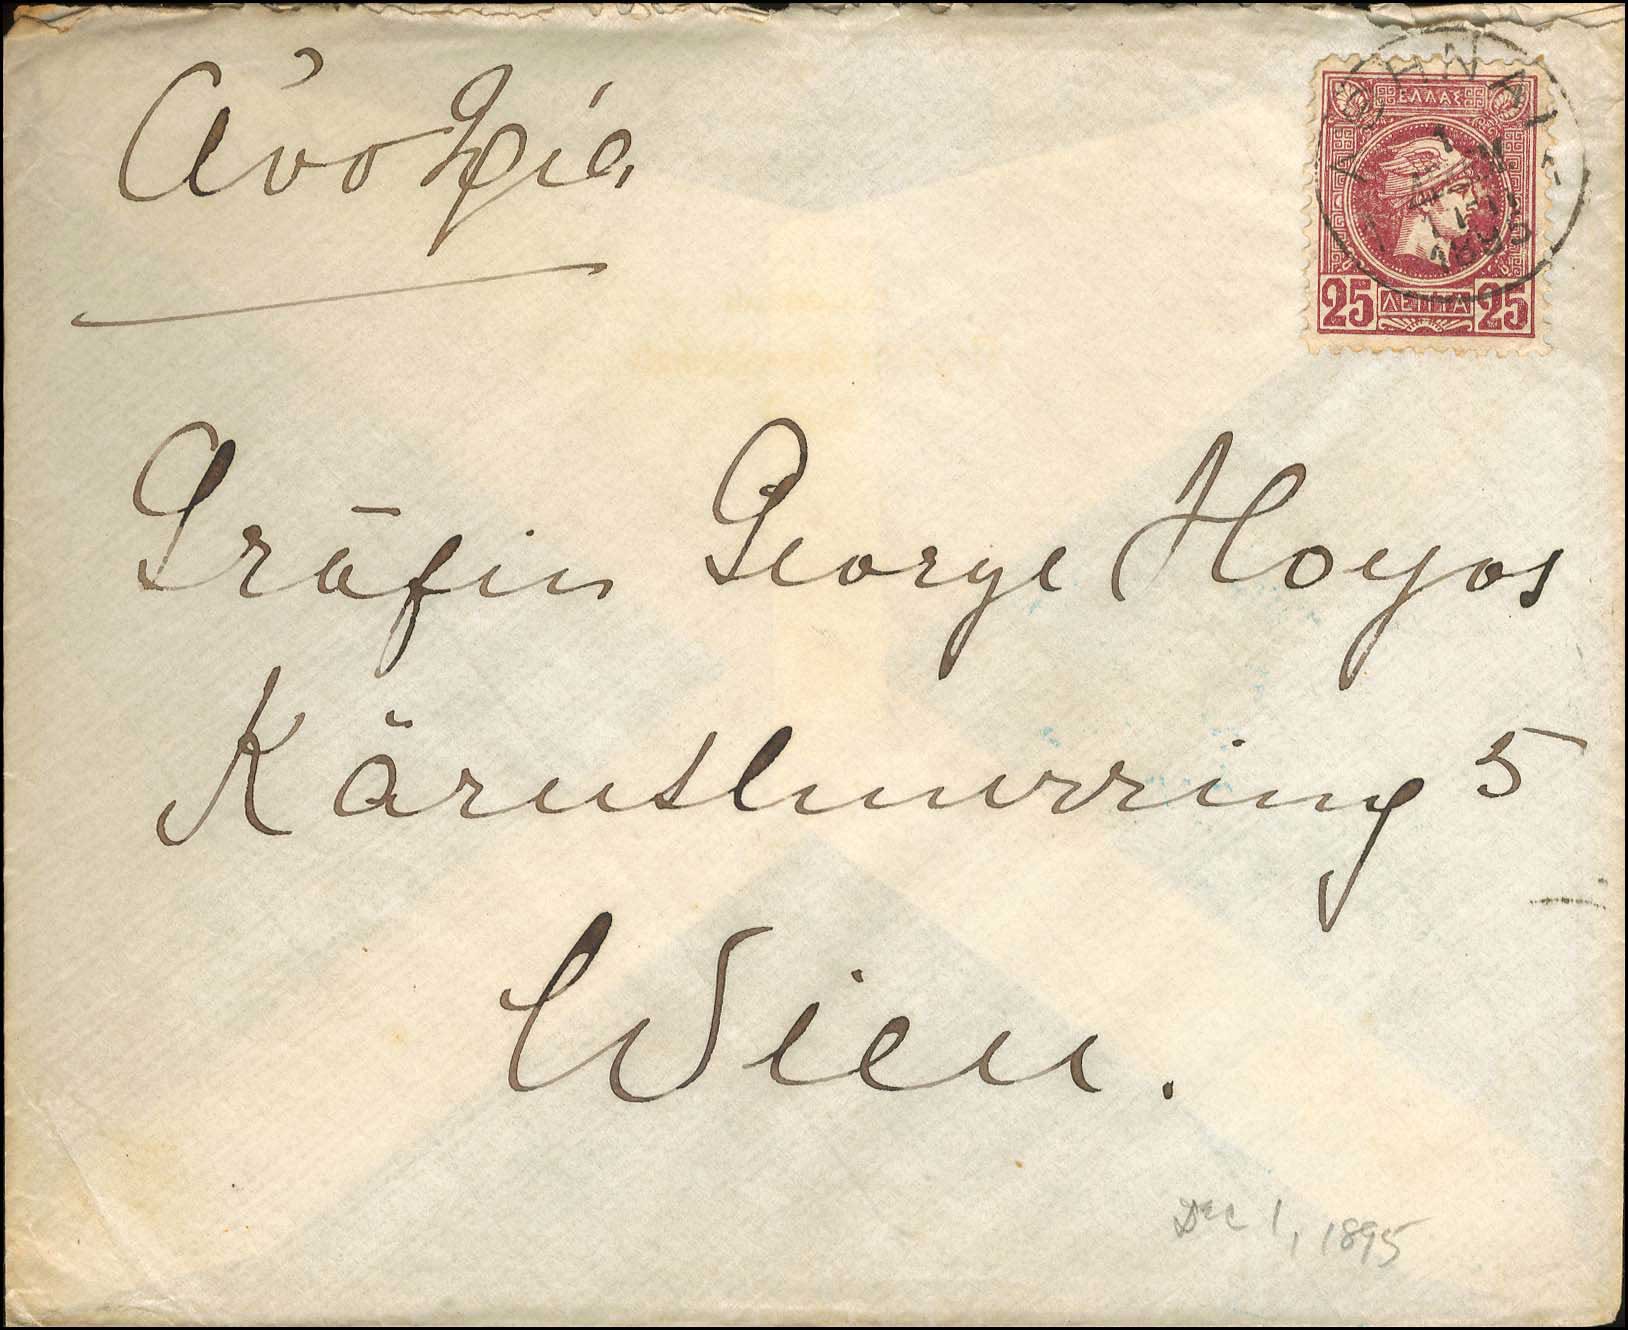 Αὐστρία
ΑΘΗΝΑΙ
ΕΛΛΑΣ
1895
25 ΛΕΠΤΑ 25
Gräfin George Hoyos
Kärnthnerring 5
Wien.
Dec 1, 1895